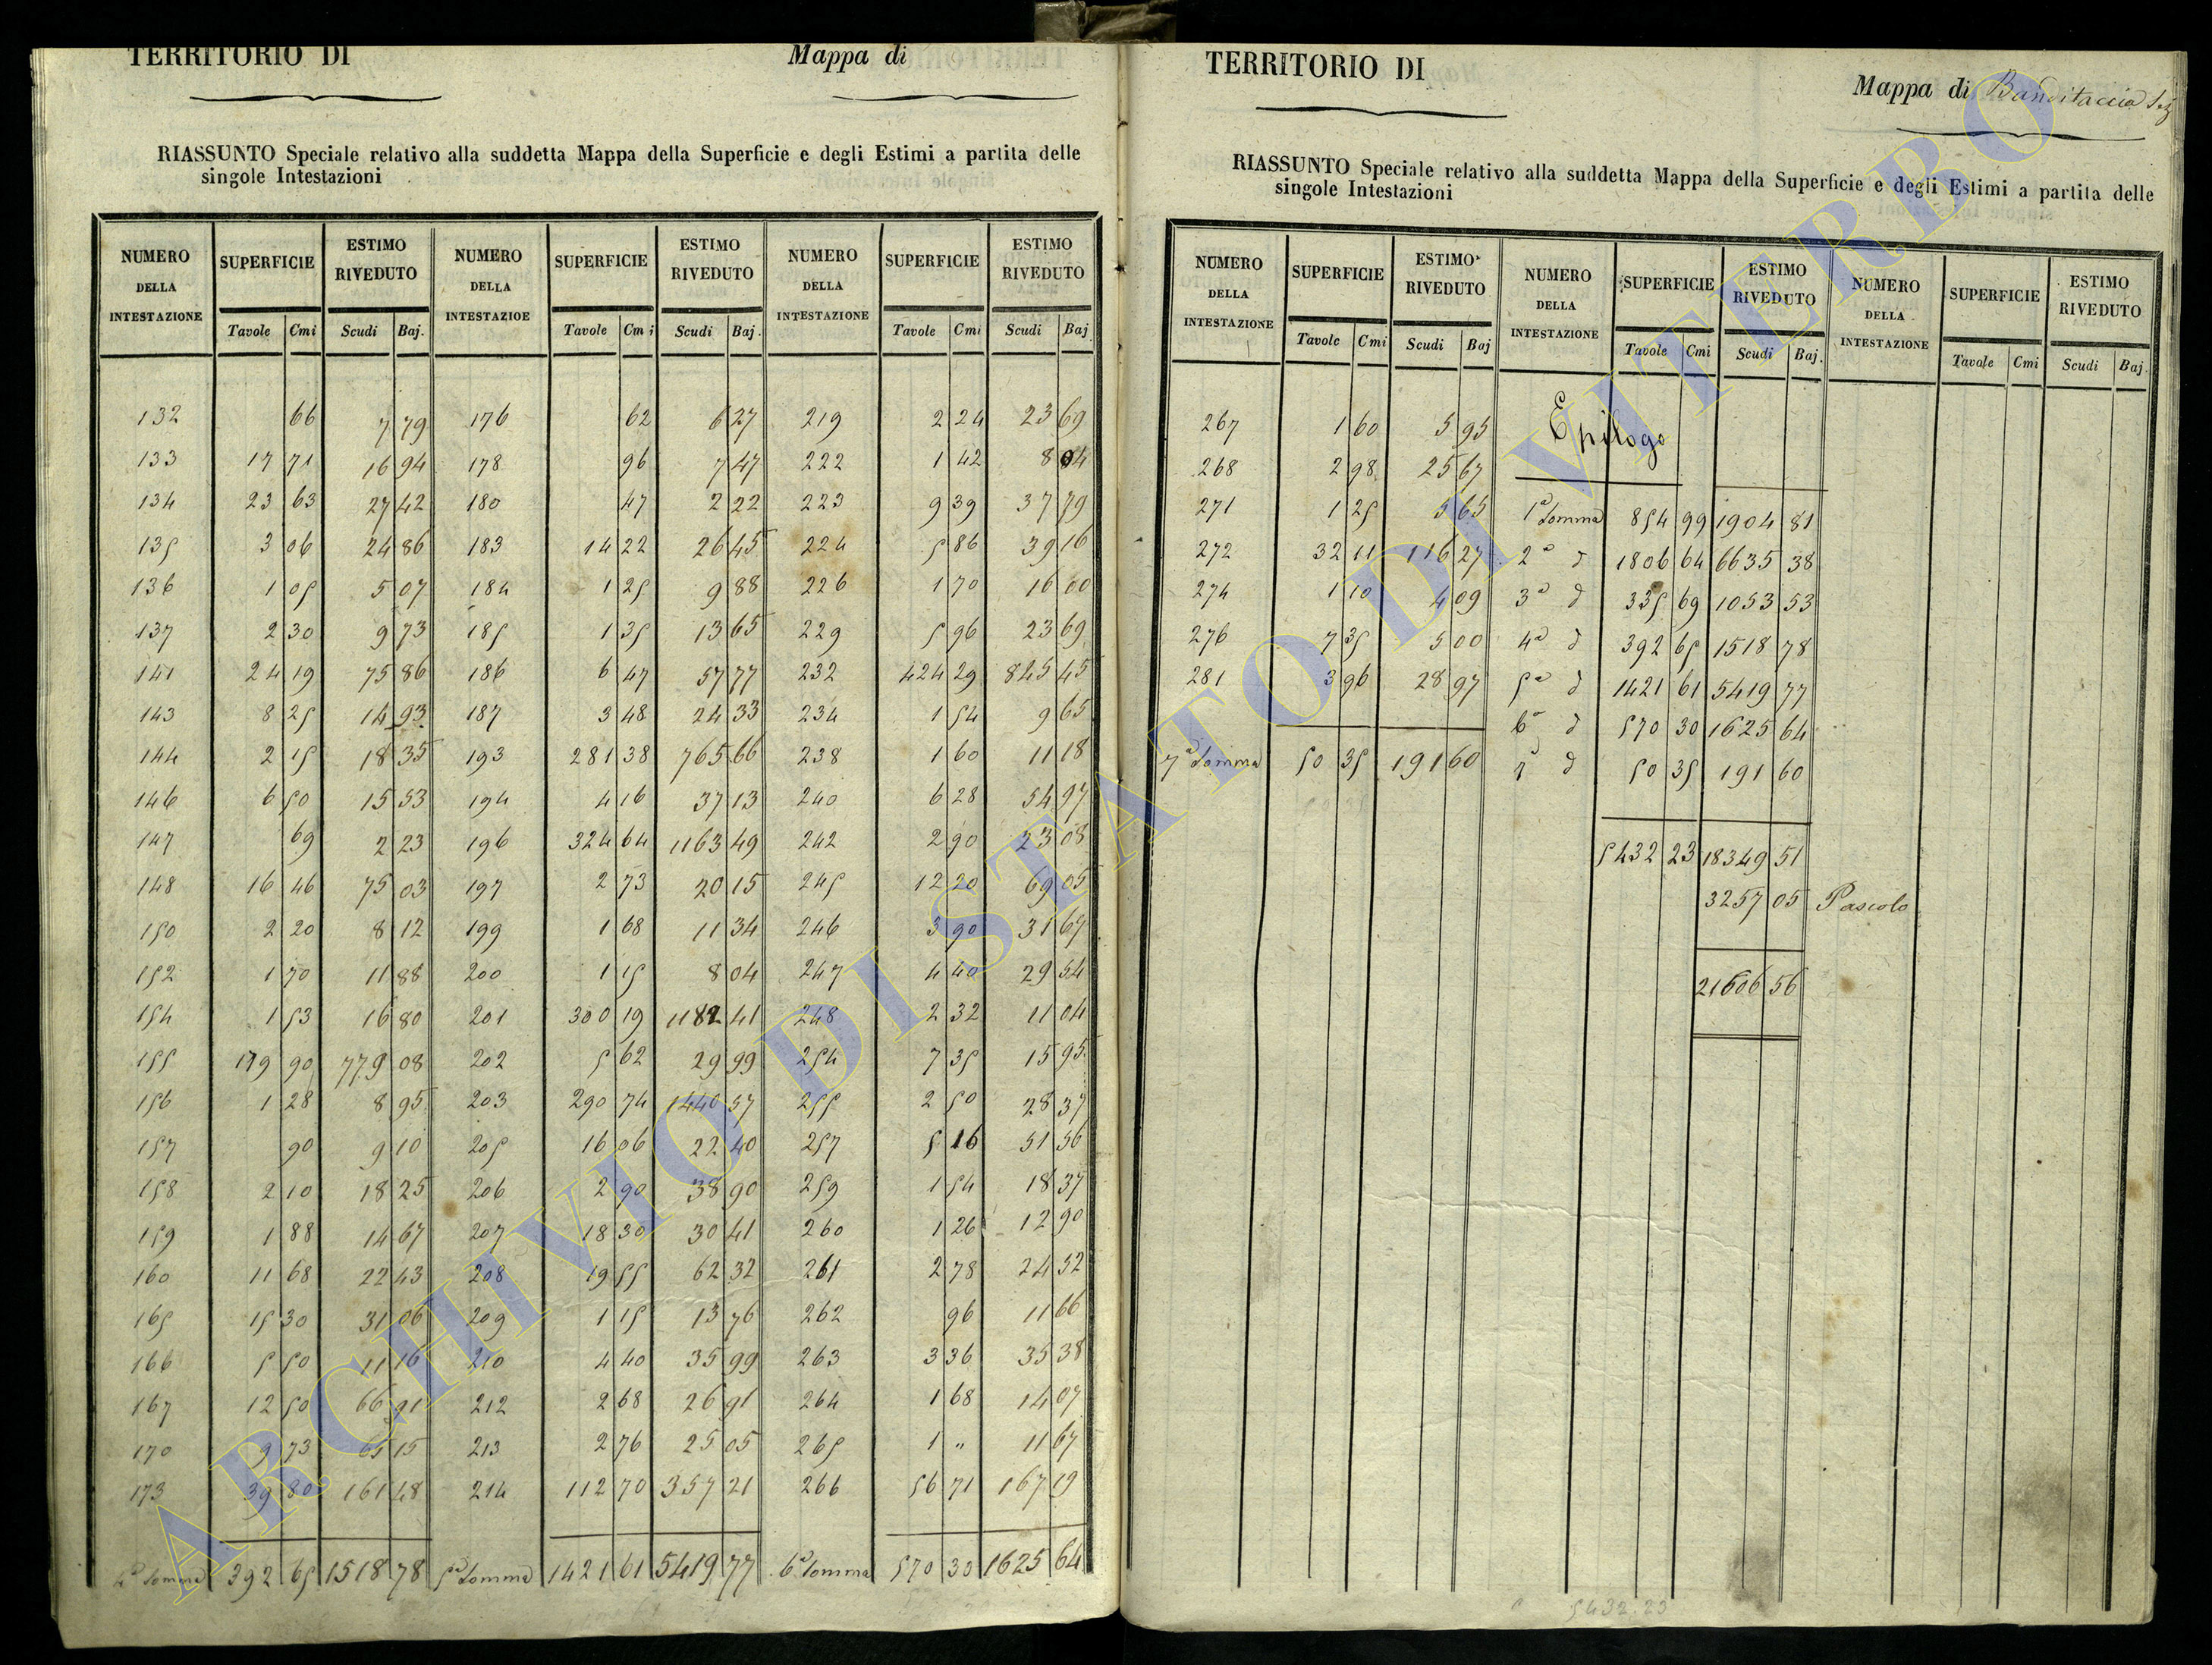 TERRITORIO DI
Mappa di
RIASSUNTO Speciale relativo alla suddetta Mappa della Superficie e degli Estimi a partita delle
singole Intestazioni
NUMERO DELLA INTESTAZIONE SUPERFICIE ESTIMO RIVEDUTO NUMERO DELLA INTESTAZIOE SUPERFICIE ESTIMO RIVEDUTO NUMERO DELLA INTESTAZIONE SUPERFICIE ESTIMO RIVEDUTO
Tavole Cmi Scudi Baj. Tavole Cmi Scudi Baj. Tavole Cmi Scudi Baj
132 66 7 79 176 62 6 27 219 2 24 23 69
133 17 71 16 94 178 96 7 47 222 1 42 8 04
134 23 63 27 42 180 47 2 22 223 9 39 37 79
135 3 06 24 86 183 14 22 26 45 224 5 86 39 16
136 1 05 5 07 184 1 25 9 88 226 1 70 16 00
137 2 30 9 73 185 1 35 13 65 229 5 96 23 69
141 24 19 75 86 186 6 47 57 77 232 424 29 845 45
143 8 25 14 93 187 3 48 24 33 234 1 54 9 65
144 2 15 18 35 193 281 38 765 66 238 1 60 11 18
146 6 50 15 53 194 4 16 37 13 240 6 28 54 97
147 69 2 23 196 324 64 1163 49 242 2 90 23 08
148 16 46 75 03 197 2 73 20 15 245 12 20 69 05
150 2 20 8 12 199 1 68 11 34 246 3 90 31 67
152 1 70 11 88 200 1 15 8 04 247 4 40 29 54
154 1 53 16 80 201 300 19 1182 41 248 2 32 11 04
155 179 90 779 08 202 5 62 29 99 254 7 35 15 95
156 1 28 8 95 203 290 74 1440 57 255 2 50 28 37
157 90 9 10 205 16 06 22 40 257 5 16 51 56
158 2 10 18 25 206 2 90 38 90 259 1 54 18 37
159 1 88 14 67 207 18 30 30 41 260 1 26 12 90
160 11 68 22 43 208 19 55 62 32 261 2 78 24 52
165 15 30 31 06 209 1 15 13 76 262 96 11 66
166 5 50 11 16 210 4 40 35 99 263 3 36 35 38
167 12 50 66 91 212 2 68 26 91 264 1 68 14 07
170 9 73 65 15 213 2 76 25 05 265 1 " 11 67
173 39 80 161 48 214 112 70 357 21 266 56 71 167 19
4a Somma 392 65 1518 78 5a Somma 1421 61 5419 77 6a Somma 570 30 1625 64
TERRITORIO DI
Mappa di Banditaccia Sez
RIASSUNTO Speciale relativo alla suddetta Mappa della Superficie e degli Estimi a partita delle
singole Intestazioni
NUMERO DELLA INTESTAZIONE SUPERFICIE ESTIMO RIVEDUTO NUMERO DELLA INTESTAZIONE SUPERFICIE ESTIMO RIVEDUTO NUMERO DELLA INTESTAZIONE SUPERFICIE ESTIMO RIVEDUTO
Tavole Cmi Scudi Baj Tavole Cmi Scudi Baj. Tavole Cmi Scudi Baj
267 1 60 5 95 Epilogo
268 2 98 25 67
271 1 25 5 65 1a Somma 854 99 1904 81
272 32 11 116 27 2a d 1806 64 6635 38
274 1 10 4 09 3a d 335 69 1053 53
276 7 35 5 00 4a d 392 65 1518 78
281 3 96 28 97 5a d 1421 61 5419 77
6a d 570 30 1625 64
7a Somma 50 35 191 60 7 d 50 35 191 60
5432 23 18349 51
3257 05 Pascolo
21606 56
5432.23
ARCHIVIO DI STATO DI VITERBO